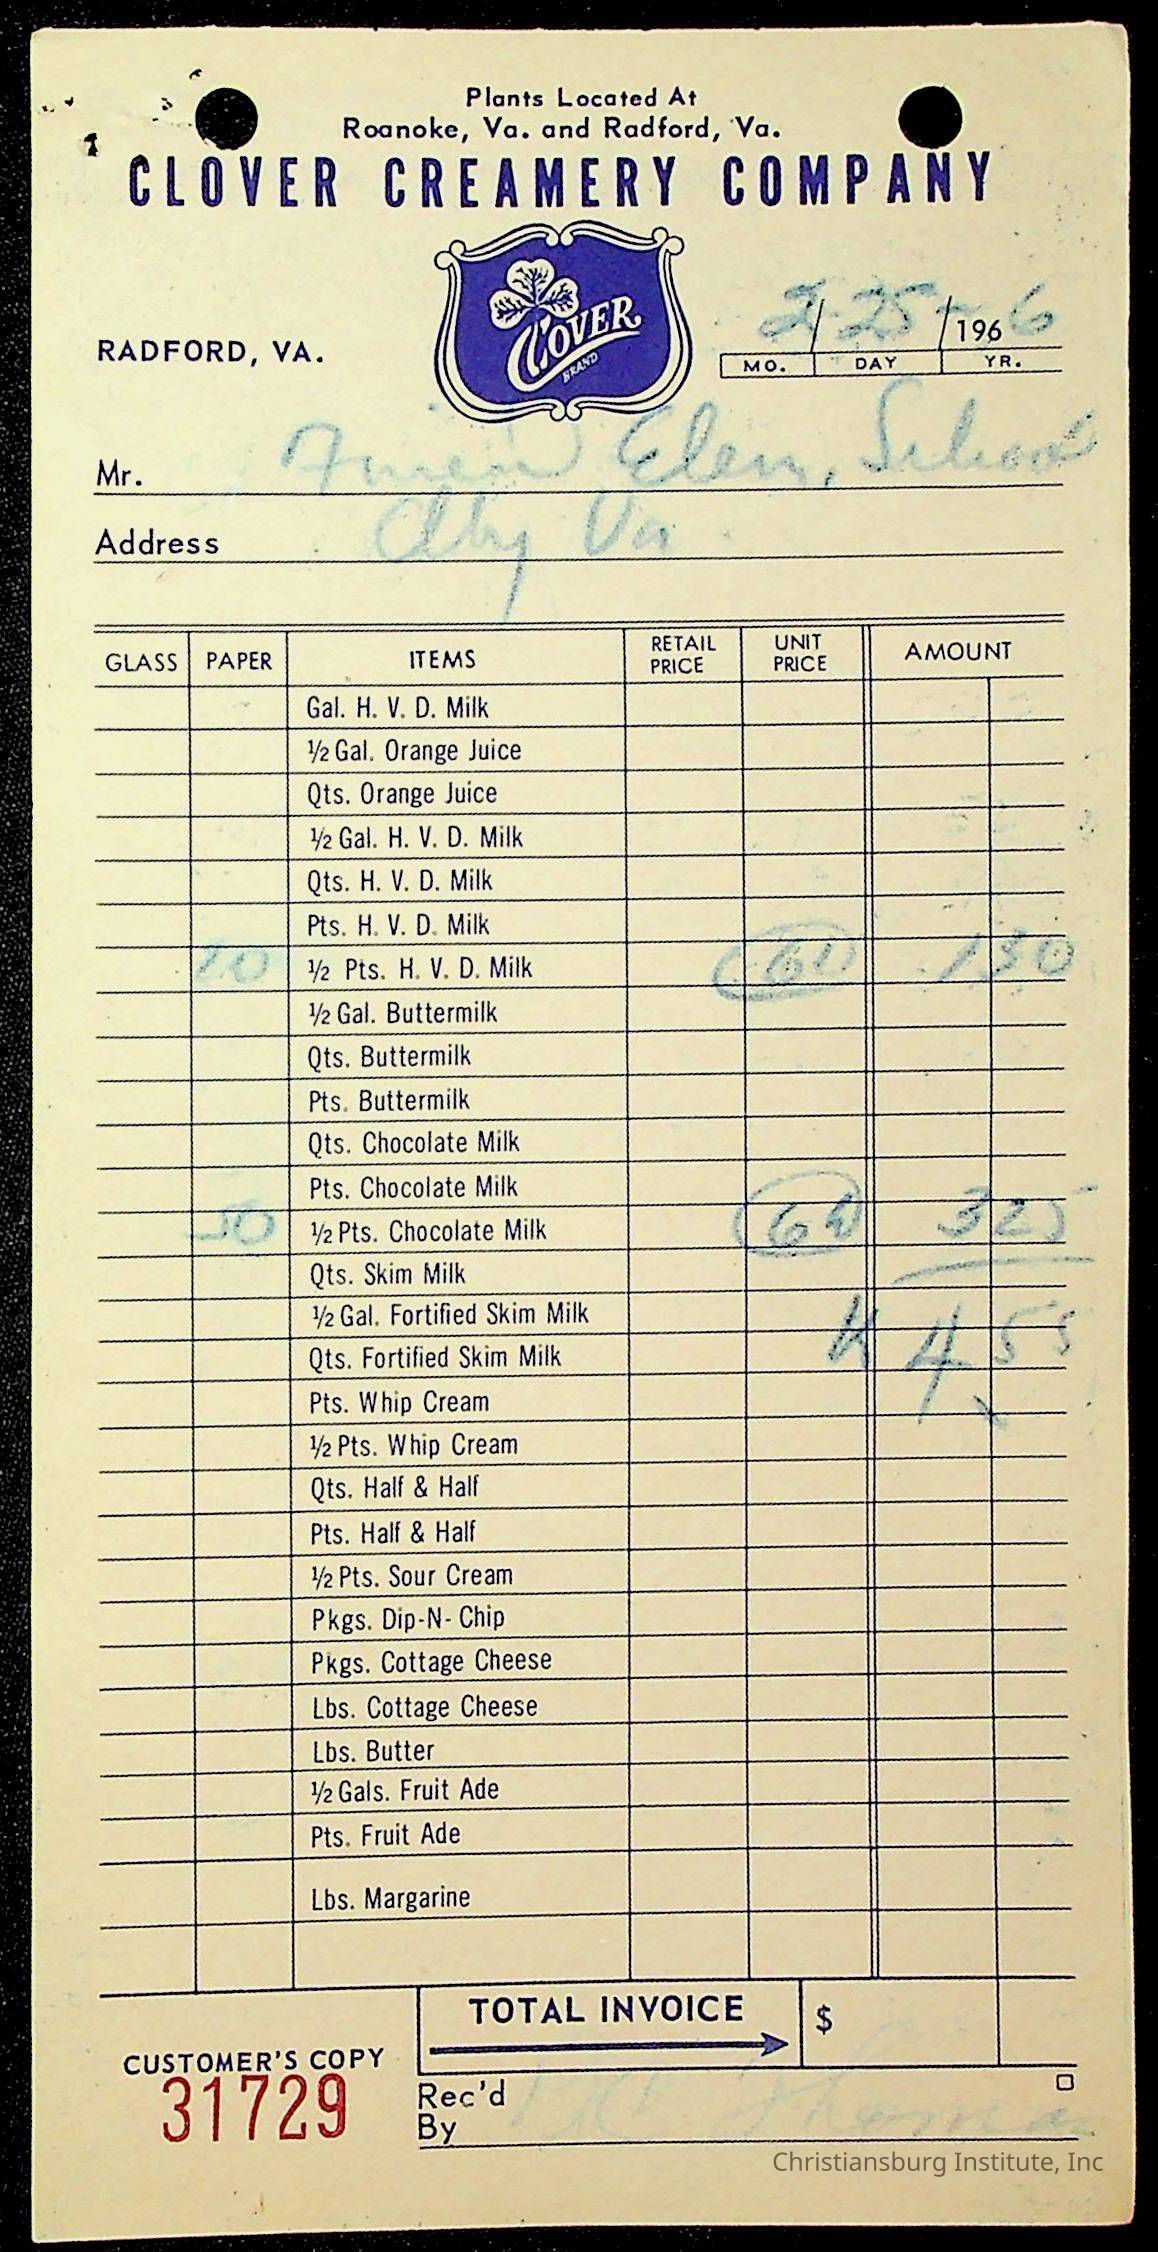 Plants Located At
Roanoke, Va. and Radford, Va.
CLOVER CREAMERY COMPANY
CLOVER
BRAND
RADFORD, VA.
2-25- 1966
MO. DAY YR.
Mr. Elem, School
Address Cbg Va
GLASS PAPER ITEMS RETAIL PRICE UNIT PRICE AMOUNT
Gal. H. V. D. Milk
½ Gal. Orange Juice
Qts. Orange Juice
½ Gal. H. V. D. Milk
Qts. H. V. D. Milk
Pts. H. V. D. Milk
20 ½ Pts. H. V. D. Milk 130
½ Gal. Buttermilk
Qts. Buttermilk
Pts. Buttermilk
Qts. Chocolate Milk
Pts. Chocolate Milk
50 ½ Pts. Chocolate Milk 325
Qts. Skim Milk
½ Gal. Fortified Skim Milk
Qts. Fortified Skim Milk 4 55
Pts. Whip Cream
½ Pts. Whip Cream
Qts. Half & Half
Pts. Half & Half
½ Pts. Sour Cream
Pkgs. Dip-N-Chip
Pkgs. Cottage Cheese
Lbs. Cottage Cheese
Lbs. Butter
½ Gals. Fruit Ade
Pts. Fruit Ade
Lbs. Margarine
TOTAL INVOICE $
CUSTOMER'S COPY
31729
Rec'd
By
Christiansburg Institute, Inc